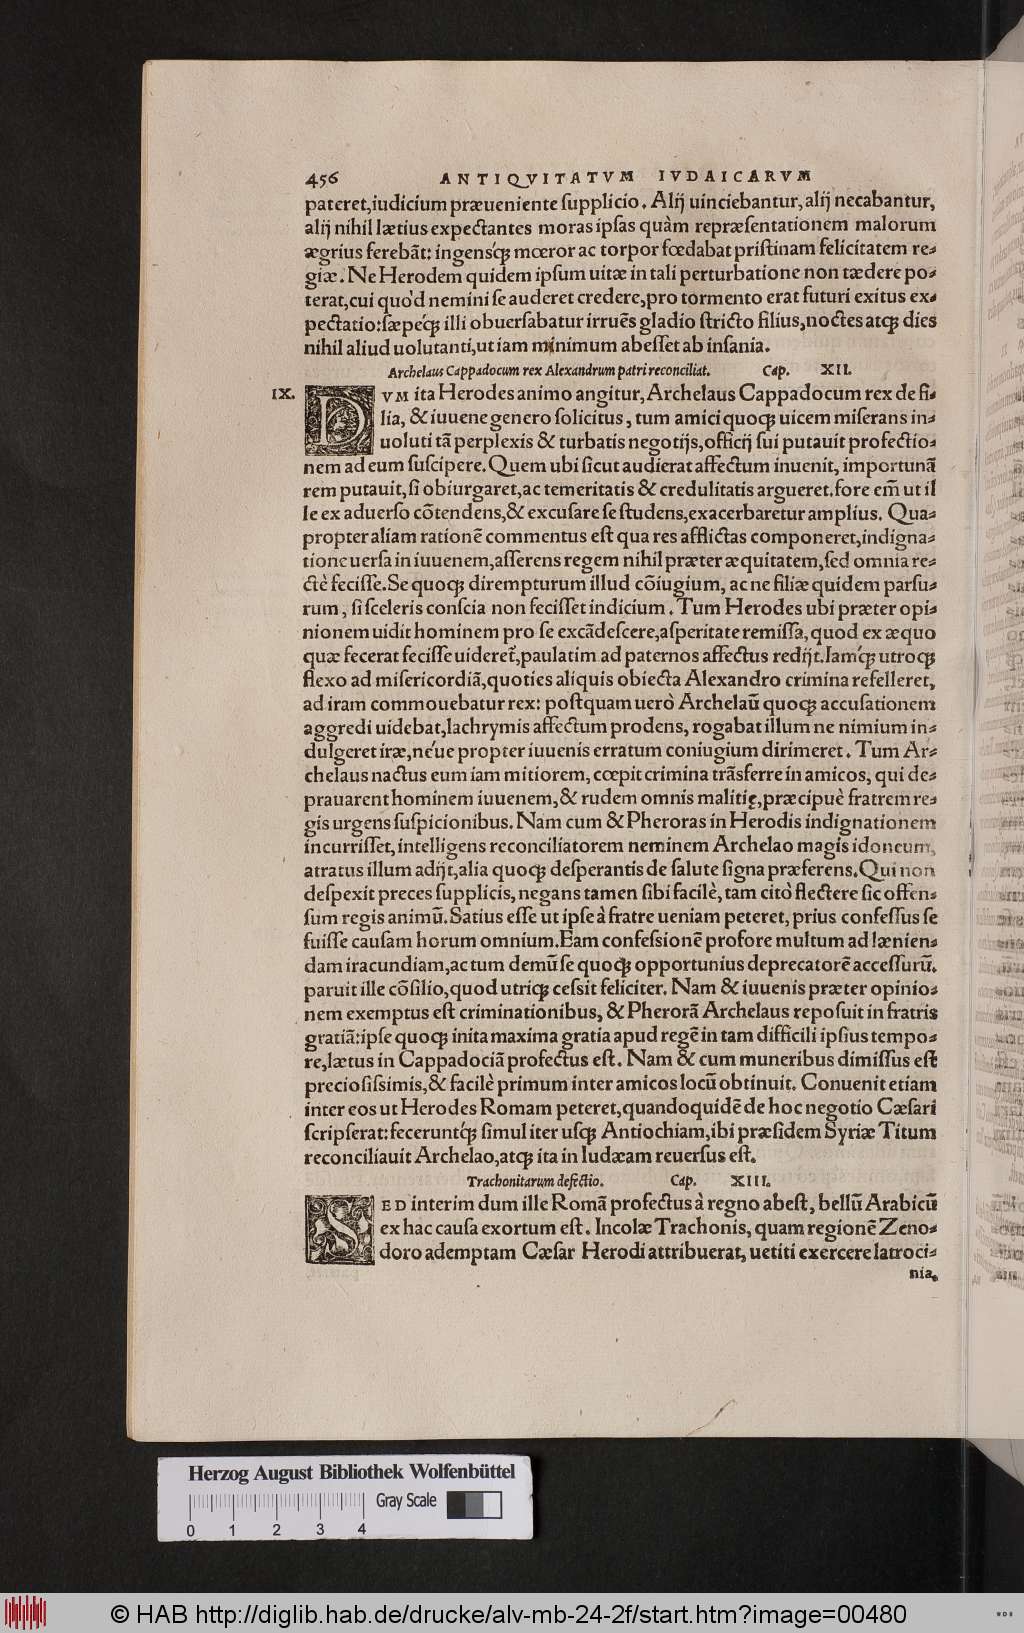 456 ANTIQVITATVM IVDAICARVM
pateret,iudicium præueniente ſupplicio. Alij uinciebantur,alij necabantur,
alij nihil lætius expectantes moras ipſas quàm repræſentationem malorum
ægrius ferebãt: ingensq́ꝫ mœror ac torpor fœdabat priſtinam felicitatem re-
giæ. Ne Herodem quidem ipſum uitæ in tali perturbatione non tædere po-
terat,cui quòd nemini ſe auderet credere,pro tormento erat futuri exitus ex-
pectatio:ſæpeq́ꝫ illi obuerſabatur irruẽs gladio ſtricto filius,noctes atqꝫ dies
nihil aliud uolutanti,ut iam minimum abeſſet ab inſania.
Archelaus Cappadocum rex Alexandrum patri reconciliat. Cap. XII.
IX. DVM ita Herodes animo angitur,Archelaus Cappadocum rex de fi-
lia, & iuuene genero ſolicitus, tum amici quoqꝫ uicem miſerans in-
uoluti tã perplexis & turbatis negotijs,officij ſui putauit profectio-
nem ad eum ſuſcipere. Quem ubi ſicut audierat affectum inuenit, importunã
rem putauit,ſi obiurgaret,ac temeritatis & credulitatis argueret.fore em̃ ut il
le ex aduerſo cõtendens,& excuſare ſe ſtudens,exacerbaretur amplius. Qua-
propter aliam rationẽ commentus eſt qua res afflictas componeret,indigna-
tione uerſa in iuuenem,aſſerens regem nihil præter æquitatem,ſed omnia re-
ctè feciſſe.Se quoqꝫ dirempturum illud cõiugium, ac ne filiæ quidem parſu-
rum, ſi ſceleris conſcia non feciſſet indicium. Tum Herodes ubi præter opi-
nionem uidit hominem pro ſe excãdeſcere,aſperitate remiſſa, quod ex æquo
quæ fecerat feciſſe uideret̃,paulatim ad paternos affectus redijt.Iamq́ꝫ utroqꝫ
flexo ad miſericordiã,quoties aliquis obiecta Alexandro crimina refelleret,
ad iram commouebatur rex: poſtquam uerò Archelaũ quoqꝫ accuſationem
aggredi uidebat,lachrymis affectum prodens, rogabat illum ne nimium in-
dulgeret iræ,néue propter iuuenis erratum coniugium dirimeret. Tum Ar-
chelaus nactus eum iam mitiorem, cœpit crimina trãſferre in amicos, qui de-
prauarent hominem iuuenem,& rudem omnis malitię,præcipuè fratrem re-
gis urgens ſuſpicionibus. Nam cum & Pheroras in Herodis indignationem
incurriſſet, intelligens reconciliatorem neminem Archelao magis idoneum,
atratus illum adijt,alia quoqꝫ deſperantis de ſalute ſigna præferens. Qui non
deſpexit preces ſupplicis, negans tamen ſibi facilè, tam citò flectere ſic offen-
ſum regis animũ. Satius eſſe ut ipſe à fratre ueniam peteret, prius confeſſus ſe
fuiſſe cauſam horum omnium.Eam confeſsionẽ profore multum ad lænien-
dam iracundiam,ac tum demũ ſe quoqꝫ opportunius deprecatorẽ acceſſurũ.
paruit ille cõſilio,quod utriqꝫ ceſsit feliciter. Nam & iuuenis præter opinio-
nem exemptus eſt criminationibus, & Pherorã Archelaus repoſuit in fratris
gratiã:ipſe quoqꝫ inita maxima gratia apud regẽ in tam difficili ipſius tempo-
re,lætus in Cappadociã profectus eſt. Nam & cum muneribus dimiſſus eſt
precioſiſsimis,& facilè primum inter amicos locũ obtinuit. Conuenit etiam
inter eos ut Herodes Romam peteret,quandoquidẽ de hoc negotio Cæſari
ſcripſerat:feceruntq́ꝫ ſimul iter uſqꝫ Antiochiam,ibi præſidem Syriæ Titum
reconciliauit Archelao,atqꝫ ita in Iudæam reuerſus eſt.
Trachonitarum defectio. Cap. XIII.
SED interim dum ille Romã profectus à regno abeſt, bellũ Arabicũ
ex hac cauſa exortum eſt. Incolæ Trachonis, quam regionẽ Zeno-
doro ademptam Cæſar Herodi attribuerat, uetiti exercere latroci-
nia,
Herzog August Bibliothek Wolfenbüttel
Gray Scale
0 1 2 3 4
© HAB http://diglib.hab.de/drucke/alv-mb-24-2f/start.htm?image=00480